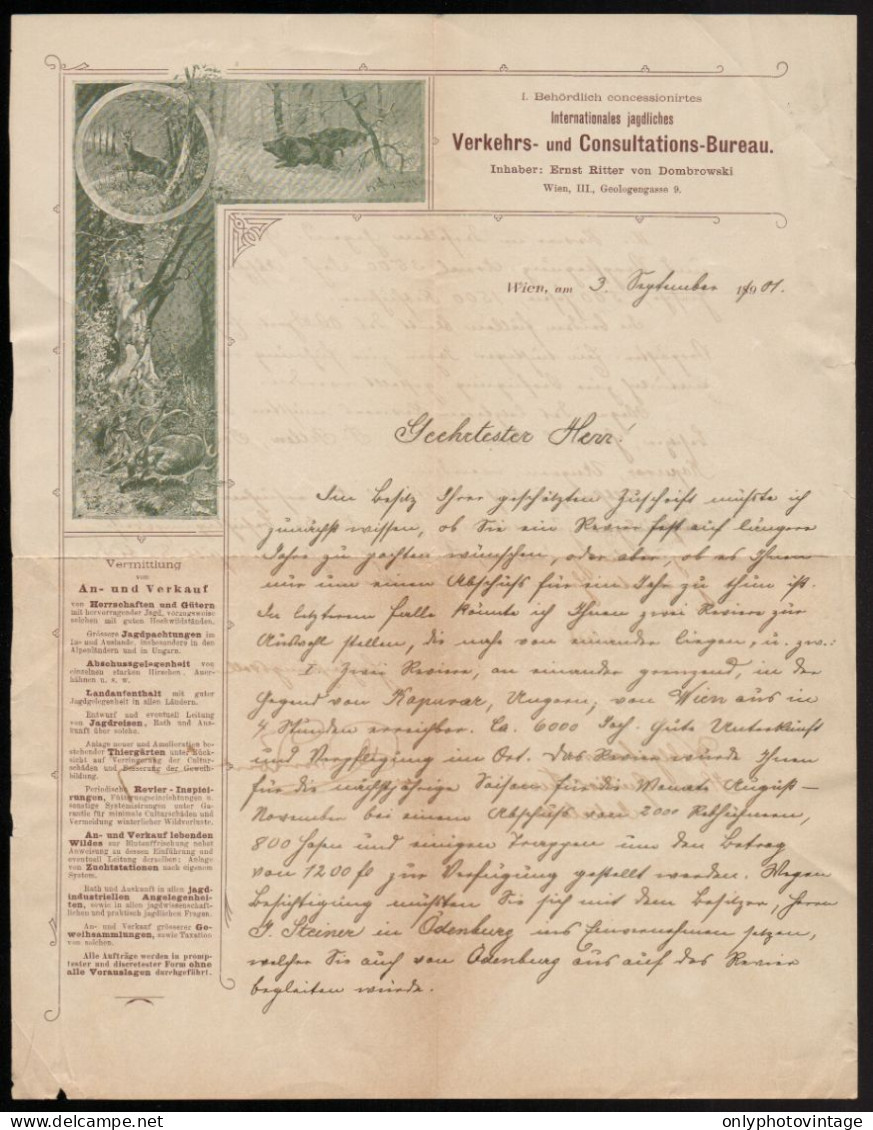 I. Behördlich concessionirtes
Internationales jagdliches
Verkehrs- und Consultations-Bureau.
Inhaber: Ernst Ritter von Dombrowski
Wien, III., Geologengasse 9.
Wien, am 3. September 1901.
Geehrtester Herr!
Im Besitz Ihrer geschätzten Zuschrift müßte ich
zunächst wissen, ob Sie ein Revier fest auf längere
Jahre zu pachten wünschen, oder aber, ob es Ihnen
nur um einen Abschuß für ein Jahr zu thun ist.
In letzterem Falle könnte ich Ihnen zwei Reviere zur
Auswahl stellen, die nahe von einander liegen, u. zw.:
I. Zwei Reviere, an einander grenzend, in der
Gegend von Kapuvar, Ungarn; von Wien aus in
4 Stunden erreichbar. Ca. 6000 Joch. Gute Unterkunft
und Verpflegung im Ort. Das Revier würde Ihnen
für die nächstjährige Saison für die Monate August –
November bei einem Abschuß von 2000 Rebhühnern,
800 Hasen und einigen Trappen um den Betrag
von 1200 fl zur Verfügung gestellt werden. Wegen
Besichtigung müßten Sie sich mit dem Besitzer, Herrn
J. Steiner in Ödenburg ins Einvernehmen setzen,
welcher Sie auch von Ödenburg aus auf das Revier
begleiten würde.
Vermittlung
von
An- und Verkauf
von Herrschaften und Gütern
mit hervorragender Jagd, vorzugsweise
solchen mit guten Hochwildständen.
Grössere Jagdpachtungen im
In- und Auslande, insbesondere in den
Alpenländern und in Ungarn.
Abschussgelegenheit von
einzelnen starken Hirschen, Auer-
hähnen u. s. w.
Landaufenthalt mit guter
Jagdgelegenheit in allen Ländern.
Entwurf und eventuell Leitung
von Jagdreisen, Rath und Aus-
kunft über solche.
Anlage neuer und Amelioration be-
stehender Thiergärten unter Rück-
sicht auf Verringerung der Cultur-
schäden und Besserung der Geweih-
bildung.
Periodische Revier-Inspici-
rungen, Fütterungseinrichtungen u.
sonstige Systemisirungen unter Ga-
rantie für minimale Culturschäden und
Vermeidung winterlicher Wildverluste.
An- und Verkauf lebenden
Wildes zur Blutauffrischung nebst
Anweisung zu dessen Einführung und
eventuell Leitung derselben; Anlage
von Zuchtstationen nach eigenem
System.
Rath und Auskunft in allen jagd-
industriellen Angelegenhei-
ten, sowie in allen jagdwissenschaft-
lichen und praktisch jagdlichen Fragen.
An- und Verkauf grösserer Ge-
weihsammlungen, sowie Taxation
von solchen.
Alle Aufträge werden in promp-
tester und discretester Form ohne
alle Vorauslagen durchgeführt.
onlyphotovintage